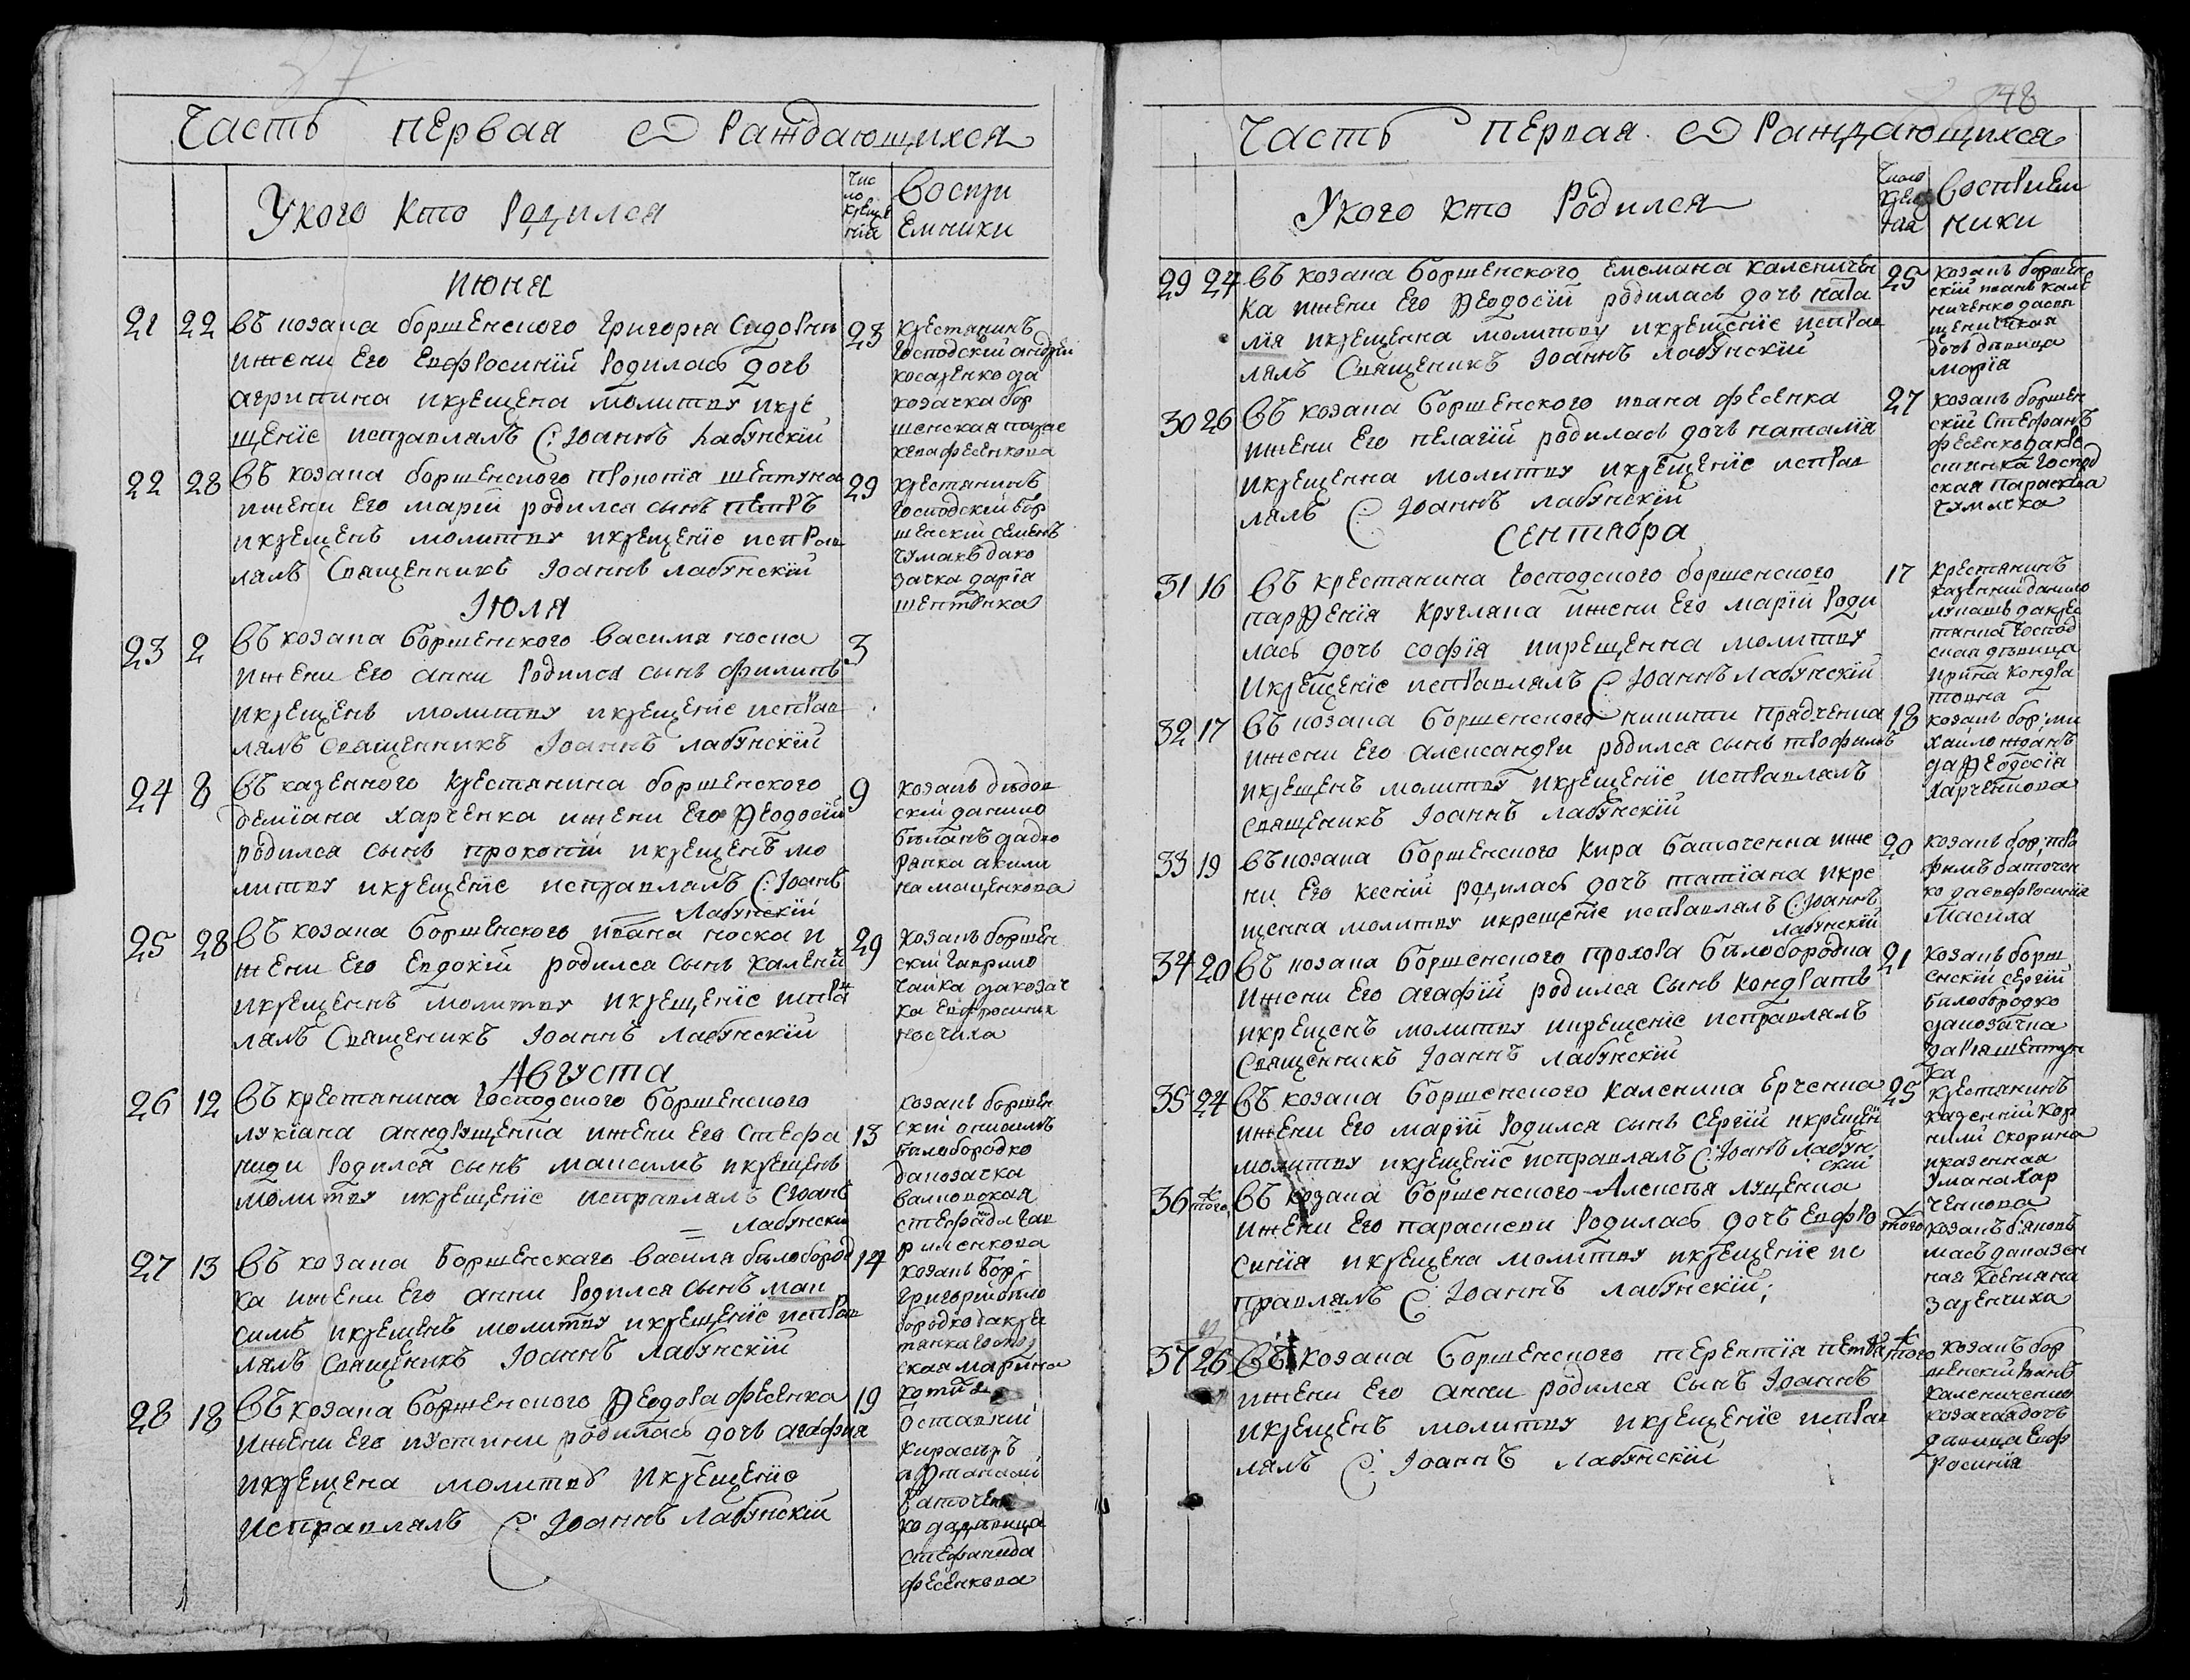 Часть первая о раждающихся
У кого кто родился
Чис
ло
креще
нія
Воспри
емники
июня
21 22 въ козака боршенского григорія Сидор
23
и жени его Евфросиній родилась дочь
агрипина и крещена молитву и кре
щеніе исправлялъ С: Іоаннъ Лабунскій
крестянинъ
господскій андрей
косаренко да
козачка бор
шенская
фесенкова
22 28 въ козака боршенского прокопія шептуна
29
и жени его марій родился сынъ петръ
и крещенъ молитву и крещеніе исправ
лялъ Священникъ Іоаннъ лабунскій
крестянинъ
господскій бор
шенскій семенъ
чумакъ да ко
зачка дарія
шептунка
Іюля
23 2 въ козака боршенского василя носка
3
и жени его анни родился сынъ филипъ
и крещенъ молитву и крещеніе исправ
лялъ священникъ Іоаннъ лабунскій
24 8 въ казенного крестянина боршенского
9
деміана харченка и жени его Ѳеодосій
родился сынъ прокопій и крещенъ мо
литву и крещеніе исправлялъ С: Іоанъ
Лабунскій
козакъ дѣдов
скій данило
бѣланъ да дво
рянка акили
на мащенкова
25 28 въ козака боршенского ивана носка и
29
жени его Евдокій родился сынъ каленй
и крещеннъ молитву и крещеніе испра
лялъ Священикъ Іоаннъ лабунскій
козакъ боршен
скій гаврило
чайка да козач
ка Евфросинія
носчиха
Августа
26 12 въ крестянина господского боршенского
лукіана андрущенка и жени его Стефа
13
ниди родился сынъ максимъ и крещенъ
молитву и крещеніе исправлялъ С Іоанъ
лабунскій
козакъ боршен
скій онисимъ
билобородко
да козачка
валковская
стефанида гав
риленкова
27 13 въ козака боршенскаго василя бѣлобород
14
ка и жени его анни родился сынъ мак
симъ и крещенъ молитву и крещеніе исправ
лялъ священикъ Іоаннъ Лабунскій
козакъ бор:
григорій било
бородко да крес
тянка господ
ская марина
28 18 въ козака боршенского Ѳеодора фесенка
19
и жени его иустини родилась дочь агафия
и крещена молитву и крещеніе
исправлялъ С: Іоаннъ лабунскій
отставний
кирасиръ
аѳтанасій
баточен
ко да дѣвица
стефанида
фесенкова
48
Часть первая о раждающихся
У кого кто родился
Число
кре
нія
Воспрієм
ники
29 24 въ козака боршенского емелиана каленичен
25
ка и жени его Ѳеодосій родилась дочь ната
лія и крещенна молитву и крещеніе исправ
лялъ Священикъ Іоаннъ лабунскій
козакъ боршен
скій иванъ кале
ниченко да свя
щеническая
дочь дѣвица
марія
30 26 въ козака боршенского ивана фесенка
27
и жени его пелагій родилась дочь наталія
и крещенна молитву и крещеніе исправ
лялъ С: Іоаннъ лабунскій
козакъ боршен
скій Стефанъ
фесенко да кре
стянка господ
ская параскева
чумачка
сентября
31 16 въ крестянина господского боршенского
17
парѳенія кругляка и жени его марій роди
лась дочь софія и крещенна молитву
и крещеніе исправлялъ С: Іоаннъ лабунскій
крестянинъ
казенний данило
лупашъ да крес
тянка господ
ская дѣвица
ирина кондра
товна
32 17 въ козака боршенского никити прядченка
18
и жени его александри родился сынъ трофимъ
и крещенъ молитву и крещеніе исправлялъ
священикъ Іоаннъ лабунскій
козакъ бор: ми
хайло жданъ
да Ѳеодосія
харченкова
33 19 въ козака боршенского кира баточенка и же
20
ни его ксеній родилась дочь татіана и кре
щенна молитву и крещеніе исправлялъ С: Іоаннъ
лабунскій
козакъ бор: тро
фимъ баточен
ко да евфросинія
масила
34 20 въ козака боршенского прохора билобородка
21
и жени его агафій родился сынъ кондратъ
и крещенъ молитву и крещеніе исправлялъ
Священникъ Іоаннъ лабунскій
козакъ борш
енскій сергій
билобородко
да козачка
дарія шептун
ка
35 24 въ козака боршенского каленика ерченка
25
и жени его марій родился сынъ сергій и крещен
молитву и крещеніе исправлялъ С: Іоанъ лабун
скій
крестянинъ
казенній кор
нилій скорина
и казенная
Умана хар
ченкова
36 того въ козака боршенского Алексѣя лущенка
того
и жени его параскеви родилась дочь Евфро
синія и крещена молитву и крещеніе ис
правлялъ С: Іоаннъ лабунскій;
козакъ
да казен
ная ксениана
заренчиха
37 26 въ козака боршенского терентія петра
того
и жени его анни родился сынъ Іоаннъ
и крещенъ молитву и крещеніе исправ
лялъ С: Іоаннъ лабунскій
козакъ бор
шенскій иванъ
калениченко
козачая дочь
дѣвица Евф
росинія